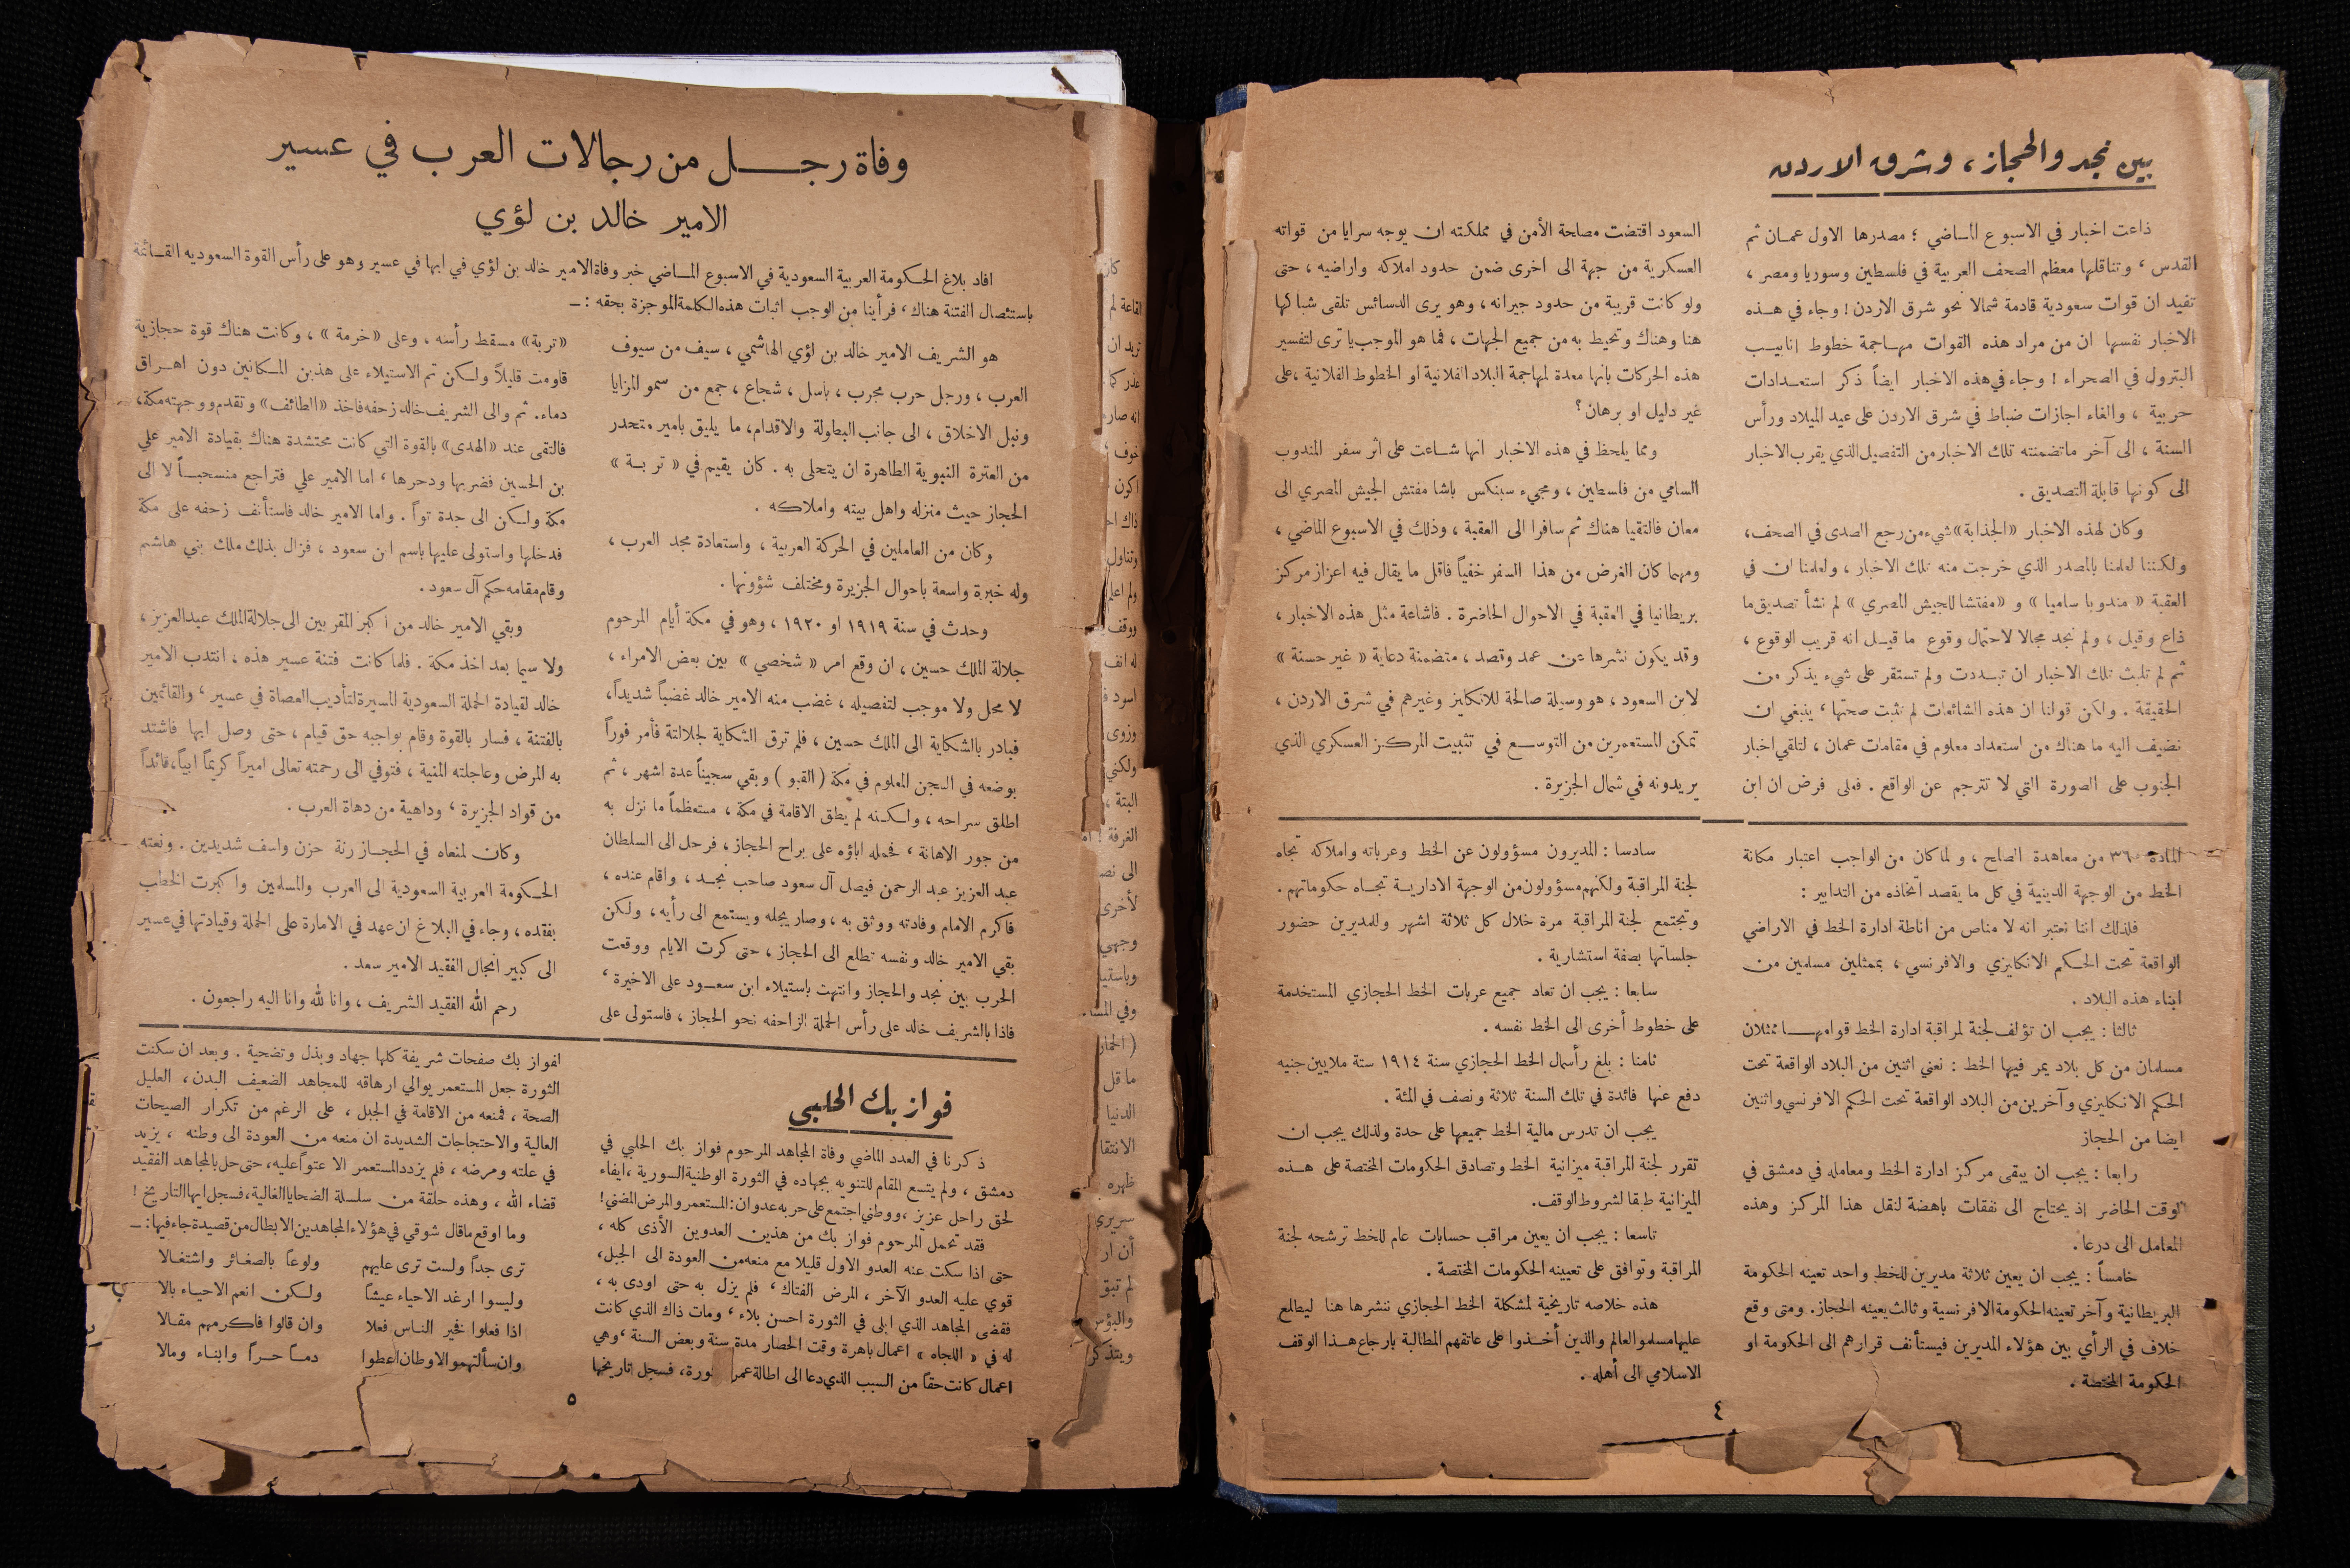 بين نجد والحجاز ، وشرق الاردن
ذاعت اخبار في الاسبوع الماضي ؛ مصدرها الاول عمان ثم
القدس ، وتناقلها معظم الصحف العربية في فلسطين وسوريا ومصر ،
تفيد ان قوات سعودية قادمة شمالا نحو شرق الاردن ! وجاء في هذه
الاخبار نفسها ان من مراد هذه القوات مهاجمة خطوط انابيب
البترول في الصحراء ! وجاء في هذه الاخبار ايضاً ذكر استعدادات
حربية ، والغاء اجازات ضباط في شرق الاردن على عيد الميلاد ورأس
السنة ، الى آخر ما تضمنته تلك الاخبار من التفصيل الذي يقرب الاخبار
الى كونها قابلة التصديق .
وكان لهذه الاخبار «الجذابة» شيء من رجع الصدى في الصحف،
ولكننا لعلمنا بالمصدر الذي خرجت منه تلك الاخبار ، ولعلمنا ان في
العقبة « مندوبا ساميا » و «مفتشا للجيش المصري » لم نشأ تصديق ما
ذاع وقيل ، ولم نجد مجالا لاحتمال وقوع ما قيل انه قريب الوقوع ،
ثم لم تلبث تلك الاخبار ان تبددت ولم تستقر على شيء يذكر من
الحقيقة . ولكن قولنا ان هذه الشائعات لم تثبت صحتها ، ينبغي ان
نضيف اليه ما هناك من استعداد معلوم في مقامات عمان ، لتلقي اخبار
الجنوب على الصورة التي لا تترجم عن الواقع . فعلى فرض ان ابن
السعود اقتضت مصلحة الأمن في مملكته ان يوجه سرايا من قواته
العسكرية من جهة الى اخرى ضمن حدود املاكه واراضيه ، حتى
ولو كانت قريبة من حدود جيرانه ، وهو يرى الدسائس تلقى شباكها
هنا وهناك وتحيط به من جميع الجهات ، فما هو الموجب يا ترى لتفسير
هذه الحركات بانها معدة لمهاجمة البلاد الفلانية او الخطوط الفلانية ، على
غير دليل او برهان ؟
ومما يلحظ في هذه الاخبار انها شاعت على اثر سفر المندوب
السامي من فلسطين ، ومجيء سبنكس باشا مفتش الجيش المصري الى
معان فالتقيا هناك ثم سافرا الى العقبة ، وذلك في الاسبوع الماضي ،
ومهما كان الغرض من هذا السفر خفياً فاقل ما يقال فيه اعزاز مركز
بريطانيا في العقبة في الاحوال الحاضرة . فاشاعة مثل هذه الاخبار ،
وقد يكون نشرها عن عمد وقصد ، متضمنة دعاية « غير حسنة »
لابن السعود ، هو وسيلة صالحة للانكليز وغيرهم في شرق الاردن ،
تمكن المستعمرين من التوسع في تثبيت المركز العسكري الذي
يريدونه في شمال الجزيرة .
المادة ٣٦٠ من معاهدة الصلح ، و لما كان من الواجب اعتبار مكانة
الخط من الوجهة الدينية في كل ما يقصد اتخاذه من التدابير :
فلذلك اننا نعتبر انه لا مناص من اناطة ادارة الخط في الاراضي
الواقعة تحت الحكم الانكليزي والافرنسي ، بممثلين مسلمين من
ابناء هذه البلاد .
ثالثا : يجب ان تؤلف لجنة لمراقبة ادارة الخط قوامها ممثلان
مسلمان من كل بلاد يمر فيها الخط : نعني اثنين من البلاد الواقعة تحت
الحكم الانكليزي وآخرين من البلاد الواقعة تحت الحكم الافرنسي واثنين
ايضا من الحجاز
رابعا : يجب ان يبقى مركز ادارة الخط ومعامله في دمشق في
الوقت الحاضر إذ يحتاج الى نفقات باهضة لنقل هذا المركز وهذه
المعامل الى درعا .
خامساً : يجب ان يعين ثلاثة مديرين للخط واحد تعينه الحكومة
البريطانية وآخر تعينه الحكومة الافرنسية وثالث يعينه الحجاز . ومتى وقع
خلاف في الرأي بين هؤلاء المديرين فيستأنف قرارهم الى الحكومة او
الحكومة المختصة .
سادسا : المديرون مسؤولون عن الخط وعرباته واملاكه تجاه
لجنة المراقبة ولكنهم مسؤولون من الوجهة الادارية تجاه حكوماتهم .
وتجتمع لجنة المراقبة مرة خلال كل ثلاثة اشهر وللمديرين حضور
جلساتها بصفة استشارية .
سابعا : يجب ان تعاد جميع عربات الخط الحجازي المستخدمة
على خطوط أخرى الى الخط نفسه .
ثامنا : بلغ رأسمال الخط الحجازي سنة ١٩١٤ ستة ملايين جنيه
دفع عنها فائدة في تلك السنة ثلاثة ونصف في المئة .
يجب ان تدرس مالية الخط جميعها على حدة ولذلك يجب ان
تقرر لجنة المراقبة ميزانية الخط وتصادق الحكومات المختصة على هذه
الميزانية طبقا لشروط الوقف.
تاسعا : يجب ان يعين مراقب حسابات عام للخط ترشحه لجنة
المراقبة وتوافق على تعيينه الحكومات المختصة .
هذه خلاصه تاريخية لمشكلة الخط الحجازي ننشرها هنا ليطلع
عليها مسلمو العالم والذين أخذوا على عاتقهم المطالبة بارجاع هذا الوقف
الاسلامي الى أهله .
٤
وفاة رجل من رجالات العرب في عسير
الامير خالد بن لؤي
افاد بلاغ الحكومة العربية السعودية في الاسبوع الماضي خبر وفاة الامير خالد بن لؤي في ابها في عسير وهو على رأس القوة السعوديه القائمة
باستئصال الفتنة هناك ، فرأينا من الوجب اثبات هذه الكلمة الموجزة بحقه : ــ
هو الشريف الامير خالد بن لؤي الهاشمي ، سيف من سيوف
العرب ، ورجل حرب مجرب ، باسل ، شجاع ، جمع من سمو المزايا
ونبل الاخلاق ، الى جانب البطولة والاقدام، ما يليق بامير متحدر
من العترة النبوية الطاهرة ان يتحلى به . كان يقيم في « تربة »
الحجاز حيث منزله واهل بيته واملاكه .
وكان من العاملين في الحركة العربية ، واستعادة مجد العرب ،
وله خبرة واسعة باحوال الجزيرة ومختلف شؤونها .
وحدث في سنة ١٩١٩ او ١٩٢٠ ، وهو في مكة أيام المرحوم
جلالة الملك حسين ، ان وقع امر « شخصي » بين بعض الامراء ،
لا محل ولا موجب لتفصيله ، غضب منه الامير خالد غضباً شديداً،
فبادر بالشكاية الى الملك حسين ، فلم ترق الشكاية لجلالتة فأمر فوراً
بوضعه في السجن المعلوم في مكة ( القبو ) وبقي سجيناً عدة اشهر ، ثم
اطلق سراحه ، ولكنه لم يطق الاقامة في مكة ، مستعظماً ما نزل به
من جور الاهانة ، فحمله اباؤه على براح الحجاز ، فرحل الى السلطان
عبد العزيز عبد الرحمن فيصل آل سعود صاحب نجد ، واقام عنده ،
فاكرم الامام وفادته ووثق به ، وصار يجله ويستمع الى رأيه ، ولكن
بقي الامير خالد ونفسه تطلع الى الحجاز ، حتى كرت الايام ووقعت
الحرب بين نجد والحجاز وانتهت باستيلاء ابن سعود على الاخيرة ،
فاذا بالشريف خالد على رأس الحملة الزاحفه نحو الحجاز ، فاستولى على
«تربة» مسقط رأسه ، وعلى «خرمة » ، وكانت هناك قوة حجازية
قاومت قليلاً ولكن تم الاستيلاء على هذين المكانين دون اهراق
دماء. ثم والى الشريف خالد زحفه فاخذ «الطائف» وتقدم ووجهته مكة،
فالتقى عند «الهدى» بالقوة التي كانت محتشدة هناك بقيادة الامير علي
بن الحسين فضربها ودحرها ، اما الامير علي فتراجع منسحباً لا الى
مكة ولكن الى جدة تواً . واما الامير خالد فاستأنف زحفه على مكة
فدخلها واستولى عليها باسم ابن سعود ، فزال بذلك ملك بني هاشم
وقام مقامه حكم آل سعود .
وبقي الامير خالد من اكبر المقربين الى جلالة الملك عبد العزيز ،
ولا سيما بعد اخذ مكة . فلما كانت فتنة عسير هذه ، انتدب الامير
خالد لقيادة الحملة السعودية المسيرة لتأديب العصاة في عسير ، والقائمين
بالفتنة ، فسار بالقوة وقام بواجبه حق قيام ، حتى وصل ابها فاشتد
به المرض وعاجلته المنية ، فتوفي الى رحمته تعالى اميراً كريماً ابياً، قائداً
من قواد الجزيرة ، وداهية من دهاة العرب .
وكان لمنعاه في الحجاز رنة حزن واسف شديدين . ونعته
الحكومة العربية السعودية الى العرب والمسلمين واكبرت الخطب
بفقده ، وجاء في البلاغ ان عهد في الامارة على الحملة وقيادتها في عسير
الى كبير انجال الفقيد الامير سعد .
رحم الله الفقيد الشريف ، وانا لله وانا اليه راجعون .
فواز بك الحلبي
ذكرنا في العدد الماضي وفاة المجاهد المرحوم فواز بك الحلبي في
دمشق ، ولم يتسع المقام للتنويه بجهاده في الثورة الوطنية السورية ، ايفاء
لحق راحل عزيز ، ووطني اجتمع على حربه عدوان : المستعمر والمرض المضني !
فقد تحمل المرحوم فواز بك من هذين العدوين الأذى كله ،
حتى اذا سكت عنه العدو الاول قليلا مع منعه من العودة الى الجبل،
قوي عليه العدو الآخر ، المرض الفتاك ، فلم يزل به حتى اودى به ،
فقضى المجاهد الذي ابلى في الثورة احسن بلاء ، ومات ذاك الذي كانت
له في « اللجاه » اعمال باهرة وقت الحصار مدة سنة وبعض السنة ، وهي
اعمال كانت حقا من السبب الذي دعا الى اطالة عمر ورة، فسجل تاريخها
لفواز بك صفحات شريفة كلها جهاد وبذل وتضحية . وبعد ان سكنت
الثورة جعل المستعمر يوالي ارهاقه للمجاهد الضعيف البدن ، العليل
الصحة ، فمنعه من الاقامة في الجبل ، على الرغم من تكرار الصيحات
العالية والاحتجاجات الشديدة ان منعه من العودة الى وطنه ، يزيد
في علته ومرضه ، فلم يزدد المستعمر الا عتواً عليه، حتى حل بالمجاهد الفقيد
قضاء الله ، وهذه حلقة من سلسلة الضحايا الغالية، فسجل ايها التاريخ !
وما اوقع ما قال شوقي في هؤلاء المجاهدين الابطال من قصيدة جاء فيها : ــ
ترى جداً ولست ترى عليهم ولوعاً بالصغائر واشتغالا
وليسوا ارغد الاحياء عيشاً ولكن انعم الاحياء بالا
اذا فعلوا فخير الناس فعلا وان قالوا فاكرمهم مقالا
وان سألتهمو الاوطان اعطوا دماً حراً وابناء ومالا
٥